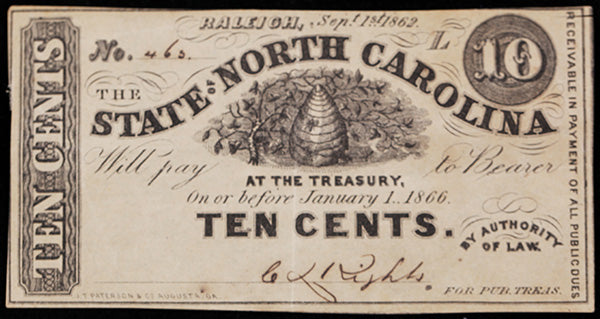 RALEIGH, Sept. 1st 1862.
No. 463.
L
10
THE
STATE OF NORTH CAROLINA
Will pay to Bearer
AT THE TREASURY,
On or before January 1.. 1866.
TEN CENTS.
BY AUTHORITY
OF LAW.
FOR PUB. TREAS.
J. T. PATERSON & CO. AUGUSTA, GA.
TEN CENTS
RECEIVABLE IN PAYMENT OF ALL PUBLIC DUES